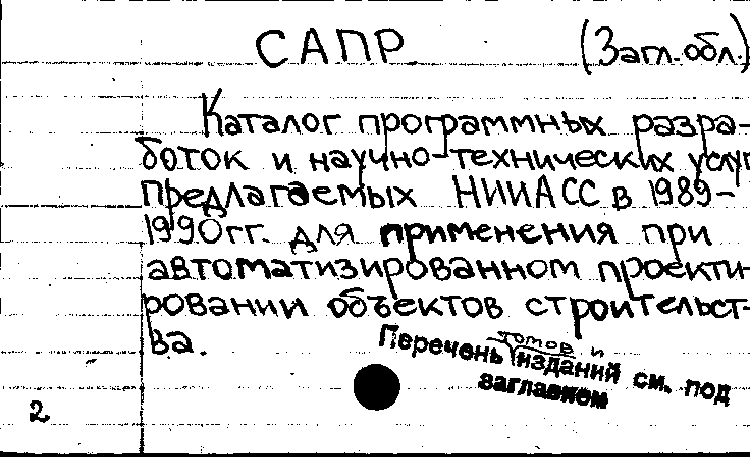 САПР (Загл.обл.)
Каталог программных разра-
боток и научно-технических услуг
предлагаемых НИИАСС в 1989-
1990гг. для применения при
автоматизированном проекти-
ровании объектов строительст-
ва.
томов и
Перечень изданий см. под
заглавием
2